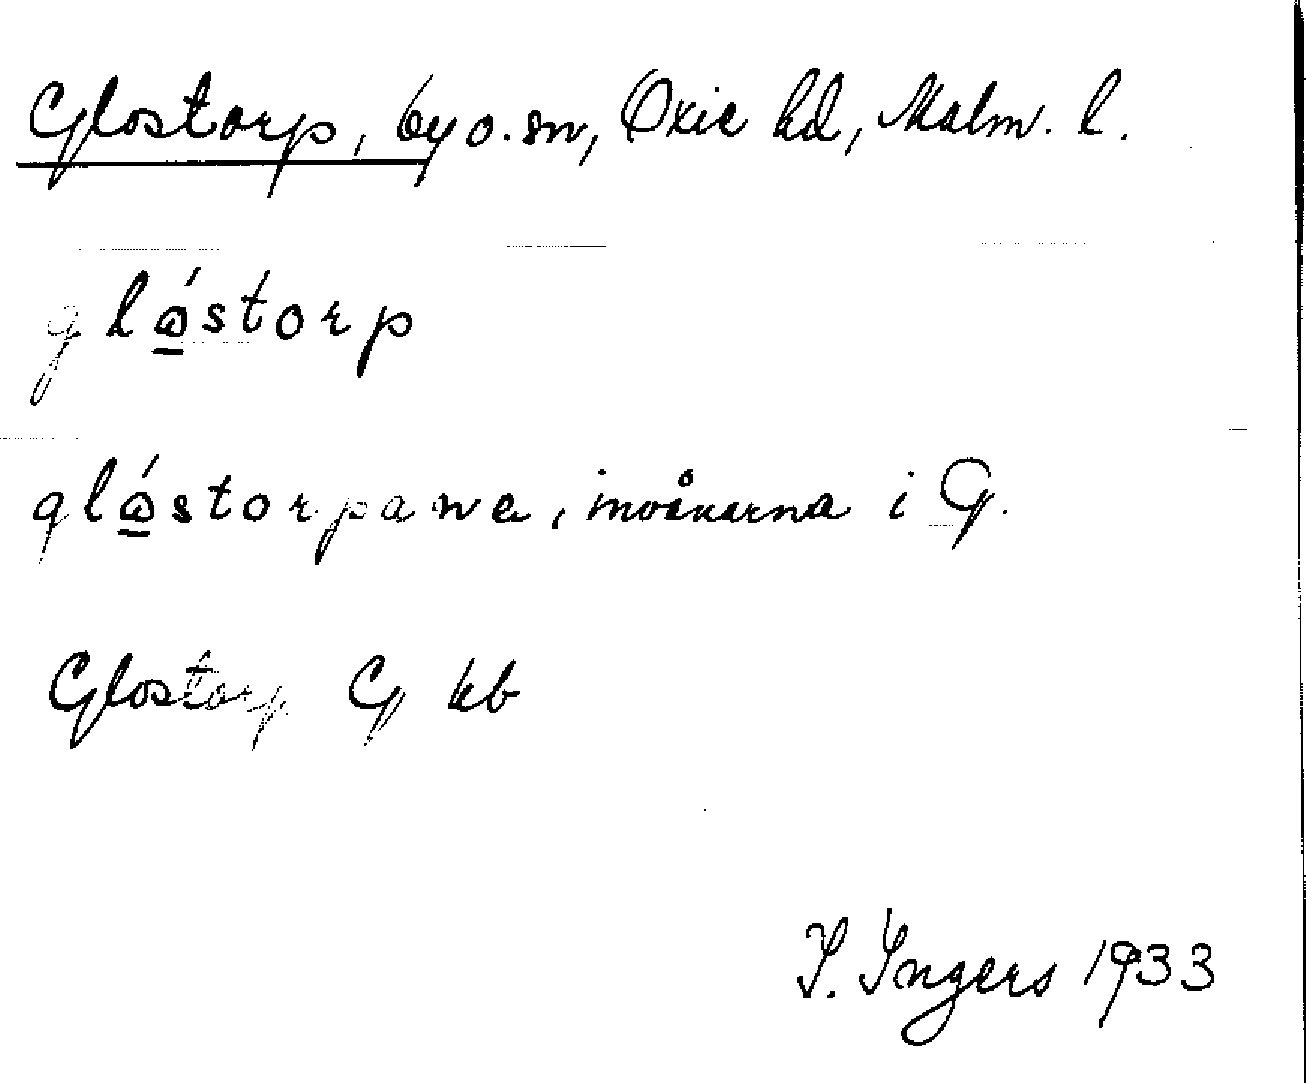 Glostorp, by o. sn, Oxie hd, Malm. l.
glǫ́storp
glǫ́storpana, invånarna i G.
Glostorp G kb
I. Ingers 1933